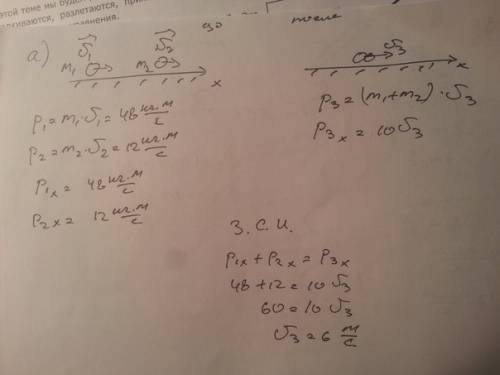 этой теме мы буд
лкиваются, разлетаются, при
нения.
до после
а) m₁ v⃗₁ m₂ v⃗₂ x
v⃗₃ x
p₁ = m₁·v₁ = 48 кг·м/с
p₂ = m₂·v₂ = 12 кг·м/с
p₁ₓ = 48 кг·м/с
p₂ₓ = 12 кг·м/с
p₃ = (m₁+m₂)·v₃
p₃ₓ = 10v₃
З.С.И.
p₁ₓ + p₂ₓ = p₃ₓ
48 + 12 = 10v₃
60 = 10v₃
v₃ = 6 м/с